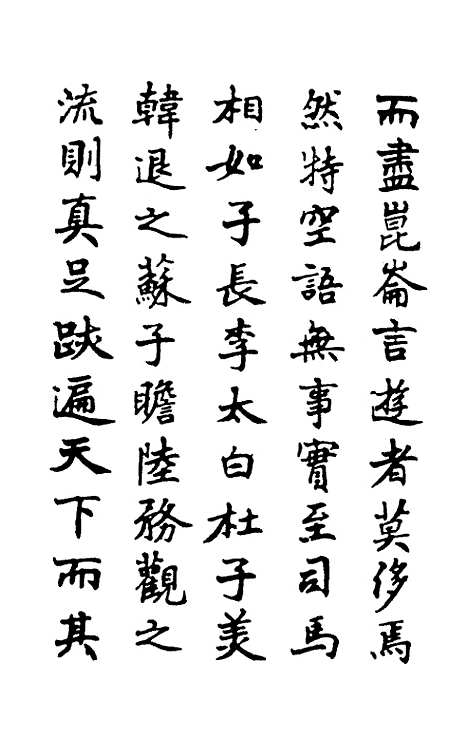 而盡崑崙言遊者莫侈焉
然特空語無事實至司馬
相如子長李太白杜子美
韓退之蘇子瞻陸務觀之
流則真足跡遍天下而其